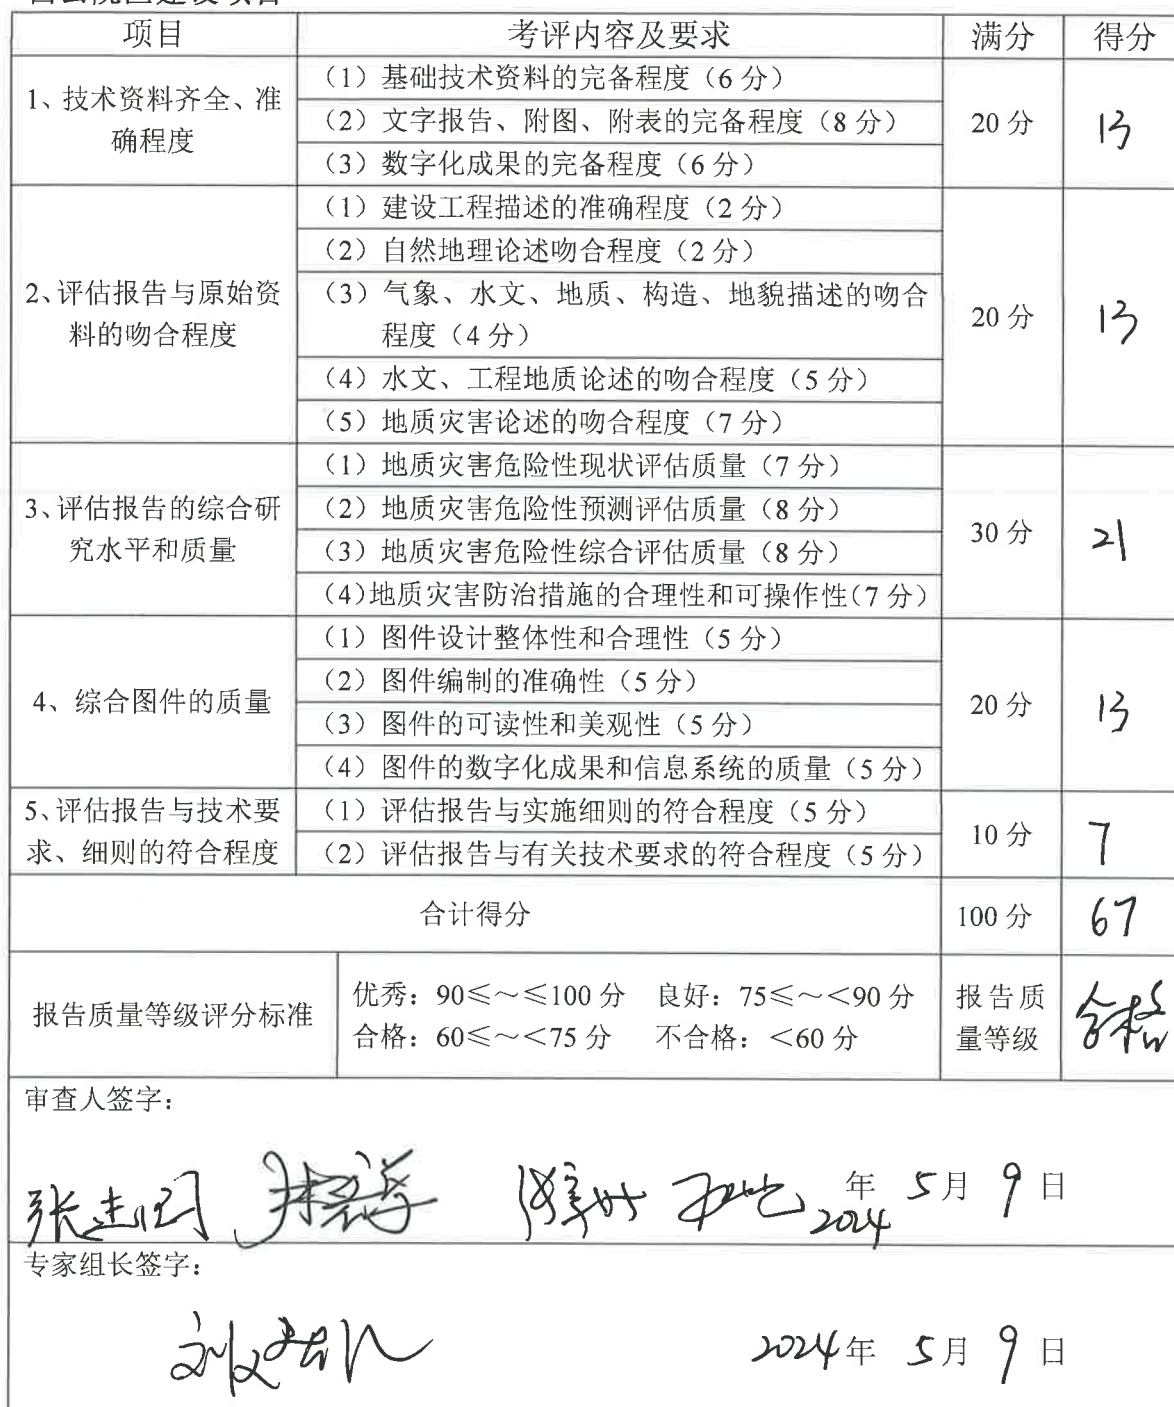 项目 考评内容及要求 满分 得分
1、技术资料齐全、准
确程度
(1)基础技术资料的完备程度(6 分)
(2)文字报告、附图、附表的完备程度(8 分)
(3)数字化成果的完备程度(6 分)
20 分 13
2、评估报告与原始资
料的吻合程度
(1)建设工程描述的准确程度(2 分)
(2)自然地理论述吻合程度(2 分)
(3)气象、水文、地质、构造、地貌描述的吻合
程度(4 分)
(4)水文、工程地质论述的吻合程度(5 分)
(5)地质灾害论述的吻合程度(7 分)
20 分 13
3、评估报告的综合研
究水平和质量
(1)地质灾害危险性现状评估质量(7 分)
(2)地质灾害危险性预测评估质量(8 分)
(3)地质灾害危险性综合评估质量(8 分)
(4)地质灾害防治措施的合理性和可操作性(7 分)
30 分 21
4、综合图件的质量
(1)图件设计整体性和合理性(5 分)
(2)图件编制的准确性(5 分)
(3)图件的可读性和美观性(5 分)
(4)图件的数字化成果和信息系统的质量(5 分)
20 分 13
5、评估报告与技术要
求、细则的符合程度
(1)评估报告与实施细则的符合程度(5 分)
(2)评估报告与有关技术要求的符合程度(5 分)
10 分 7
合计得分 100 分 67
报告质量等级评分标准
优秀:90≤~≤100 分 良好:75≤~<90 分
合格:60≤~<75 分 不合格:<60 分
报告质
量等级
合格
审查人签字:
2024年 5月 9日
专家组长签字:
2024年 5月 9日